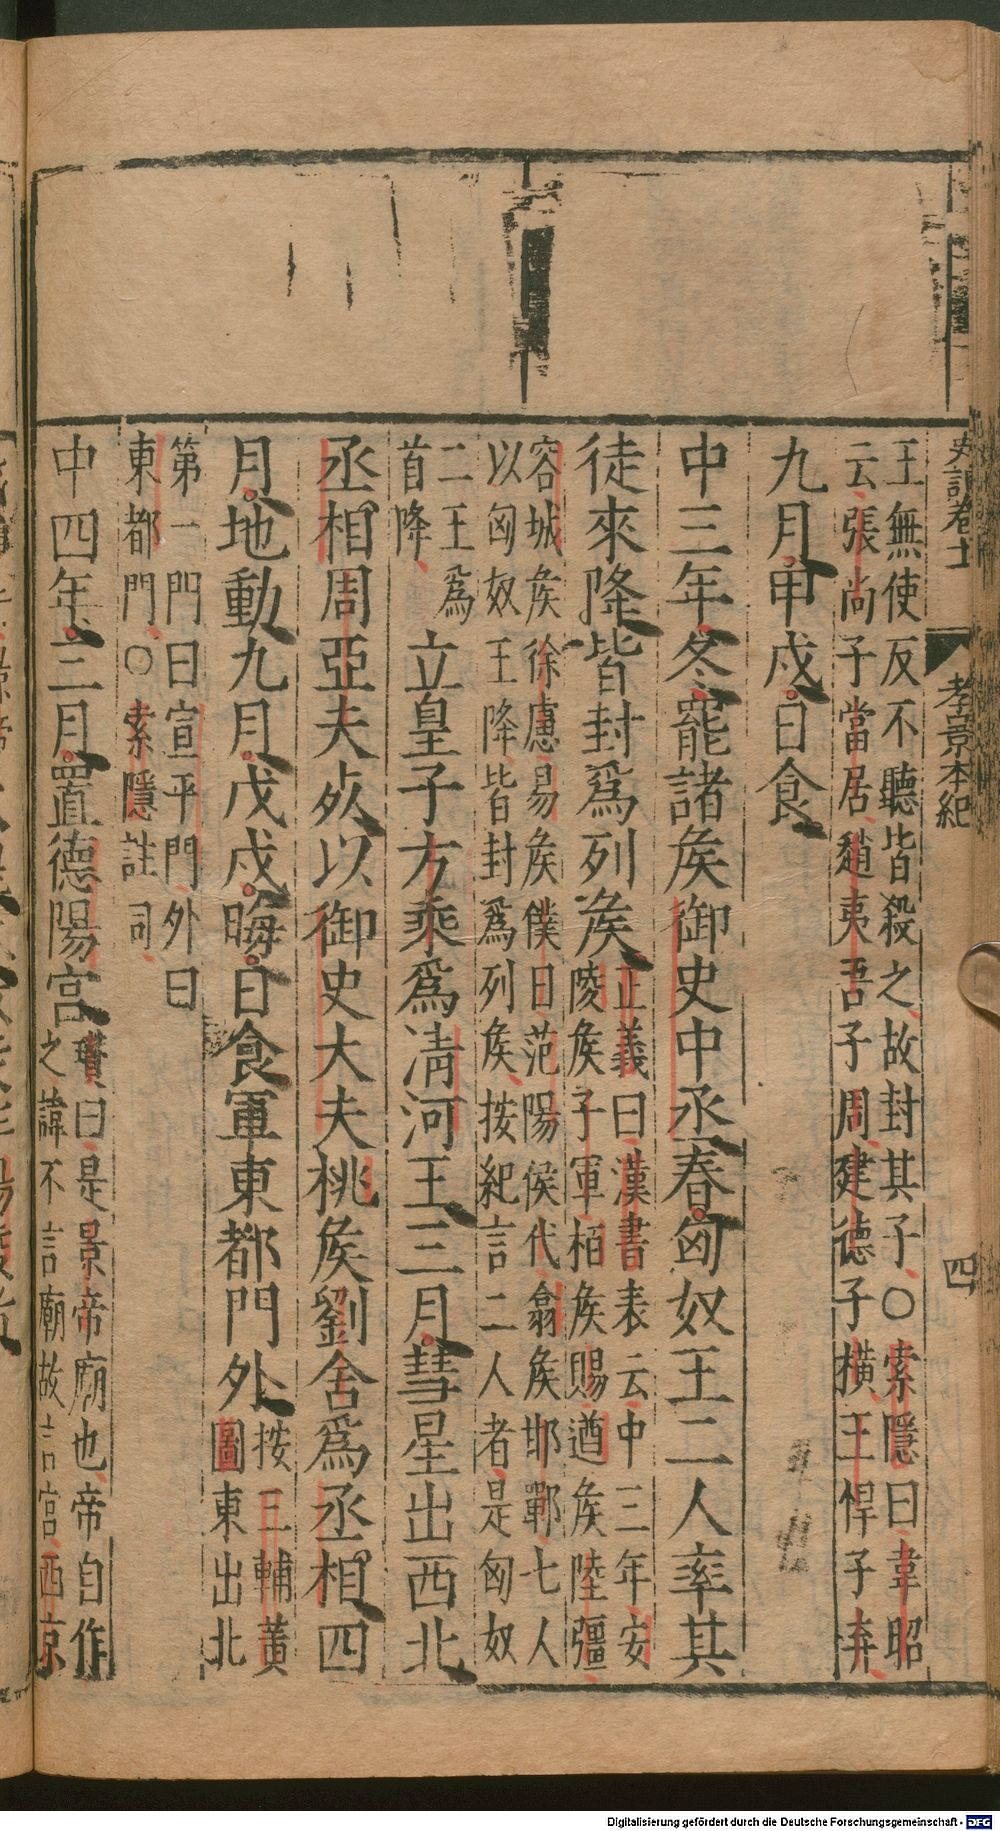 史記卷十一 孝景本紀 四
王無使反不聽皆殺之故封其子○索隱曰韋昭
云張尚子當居趙夷吾子周建德子橫王悍子棄
九月甲戌日食
中三年冬罷諸侯御史中丞春匈奴王二人率其
徒來降皆封爲列侯
正義曰漢書表云中三年安
陵侯子軍栢侯賜遒侯陸彊
容城侯徐慮易侯僕䵣范陽侯代翕侯邯鄲七人
以匈奴王降皆封爲列侯按紀言二人者是匈奴
二王爲
首降
立皇子方乘爲清河王三月彗星出西北
丞相周亞夫死以御史大夫桃侯劉舍爲丞相四
月地動九月戊戌晦日食軍東都門外
按三輔黃
圖東出北
第一門曰宣平門外曰
東都門○索隱註同
中四年三月置德陽宮
瓚曰是景帝廟也帝自作
之諱不言廟故言宮西京
Digitalisierung gefördert durch die Deutsche Forschungsgemeinschaft - DFG